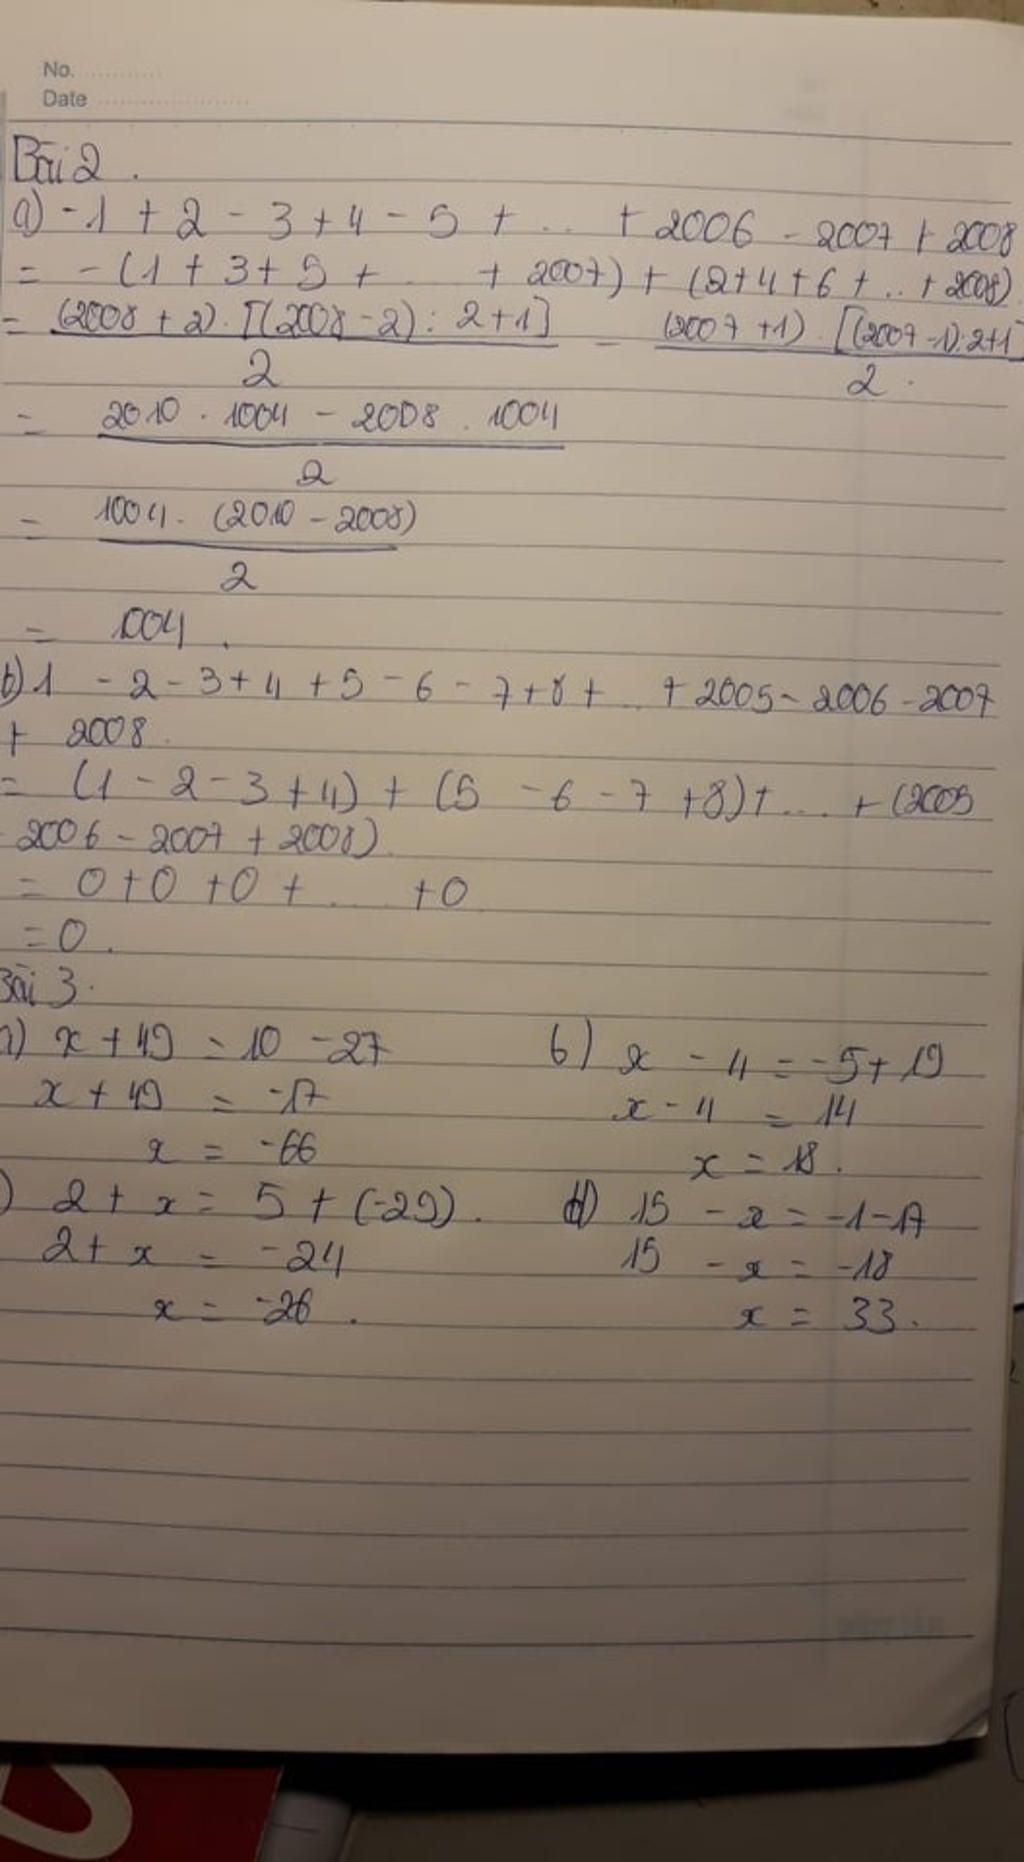 No.
Date
Bài 2.
a) -1 + 2 - 3 + 4 - 5 + .. + 2006 - 2007 + 2008
= - (1 + 3 + 5 + ... + 2007) + (2+4+6+..+2008)
= (2008 + 2). [(2008-2): 2+1] / 2 - (2007 +1). [(2007-1):2+1] / 2.
= 2010 . 1004 - 2008 . 1004 / 2
= 1004. (2010 - 2008) / 2
= 1004.
b) 1 - 2 - 3 + 4 + 5 - 6 - 7 + 8 + ... + 2005 - 2006 - 2007
+ 2008.
= (1 - 2 - 3 + 4) + (5 - 6 - 7 + 8) + .... + (2005
- 2006 - 2007 + 2008)
= 0 + 0 + 0 + .... + 0
= 0.
Bài 3.
a) x + 49 = 10 - 27
x + 49 = -17
x = -66
b) x - 4 = -5 + 19
x - 4 = 14
x = 18.
) 2 + x = 5 + (-29).
2 + x = -24
x = -26.
d) 15 - x = -1 - 17
15 - x = -18
x = 33.